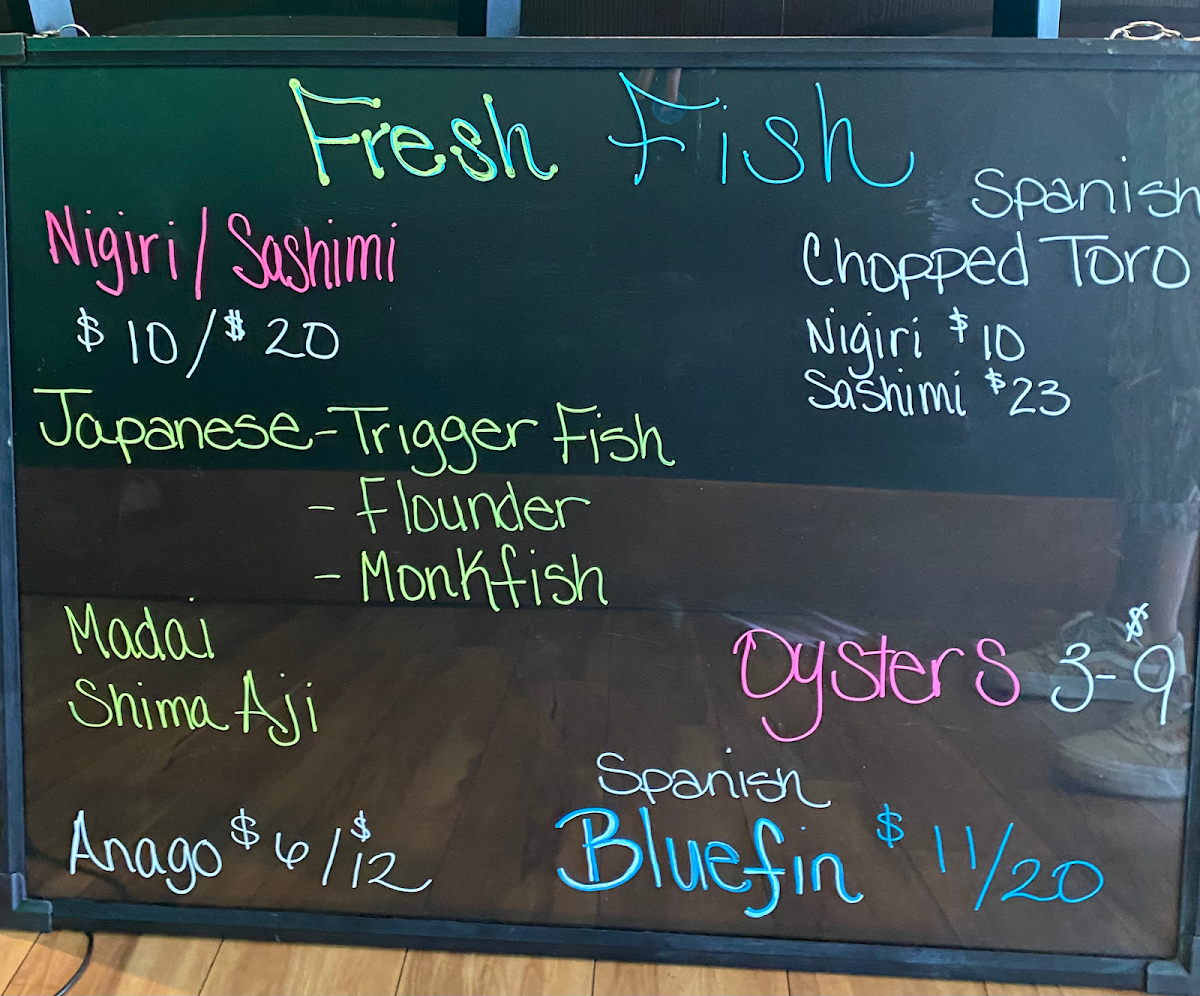 Fresh Fish
Nigiri / Sashimi
$10 / $20
Japanese - Trigger Fish
- Flounder
- Monkfish
Madai
Shima Aji
Anago $6 / $12
Spanish
Chopped Toro
Nigiri $10
Sashimi $23
Oysters $3-9
Spanish
Bluefin $11/20